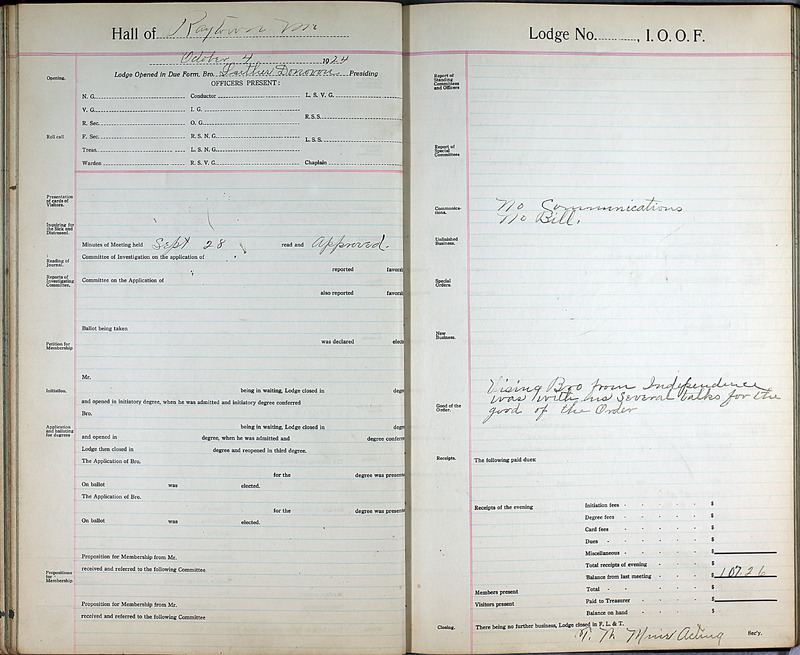 Hall of Raytown Mo
October 4 1924
Opening.
Lodge Opened in Due Form, Bro. Luther Donovan Presiding
OFFICERS PRESENT:
N. G. Conductor L. S. V. G.
V. G. I. G.
R. S. S.
R. Sec. O. G.
Roll call
F. Sec. R. S. N. G.
L. S. S.
Treas. L. S. N. G.
Warden R. S. V. G. Chaplain
Presentation of cards of Visitors.
Inquiring for the Sick and Distressed.
Minutes of Meeting held Sept 28 read and Approved.
Reading of Journal.
Committee of Investigation on the application of
reported favora
Reports of Investigating Committee.
Committee on the Application of
also reported favora
Ballot being taken
was declared elec
Petition for Membership
Mr.
Initiation.
being in waiting, Lodge closed in degr
and opened in initiatory degree, when he was admitted and initiatory degree conferred
Bro.
Application and balloting for degrees
being in waiting, Lodge closed in degr
and opened in degree, when he was admitted and degree conferr
Lodge then closed in degree and reopened in third degree.
The Application of Bro.
for the degree was presente
On ballot was elected.
The Application of Bro.
for the degree was presente
On ballot was elected.
Proposition for Membership from Mr.
Propositions for Membership
received and referred to the following Committee
Proposition for Membership from Mr.
received and referred to the following Committee
Lodge No. , I. O. O. F.
Report of Standing Committees and Officers
Report of Special Committees
Communications.
No Communications
No Bill.
Unfinished Business.
Special Orders.
New Business.
Good of the Order.
Vising Bro from Independence
was with his several talks for the
good of the Order
Receipts.
The following paid dues:
Receipts of the evening Initiation fees $
Degree fees $
Card fees $
Dues $
Miscellaneous $
Total receipts of evening $
Balance from last meeting $ 107.26
Members present Total $
Visitors present Paid to Treasurer $
Balance on hand $
Closing.
There being no further business, Lodge closed in F. L. & T.
Acting Sec'y.